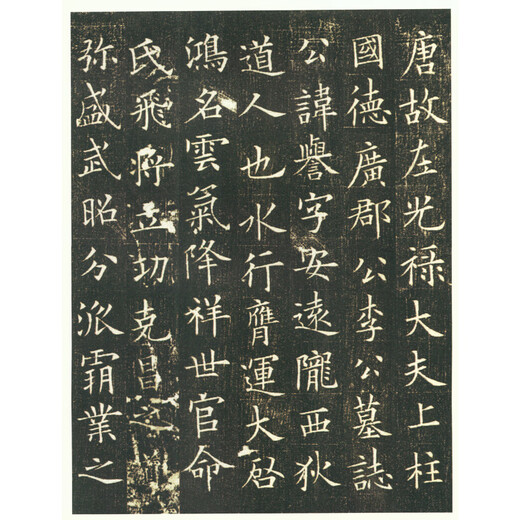 唐故左光禄大夫上柱
國德廣郡公李公墓誌
公諱譽字安遠隴西狄
道人也水行膺運大启
鴻名雲氣降祥世官命
氏飛將立功克昌之道
弥盛武昭分派霸業之